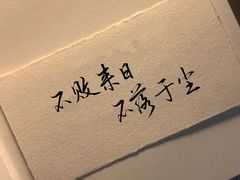 不败来日
不落于尘